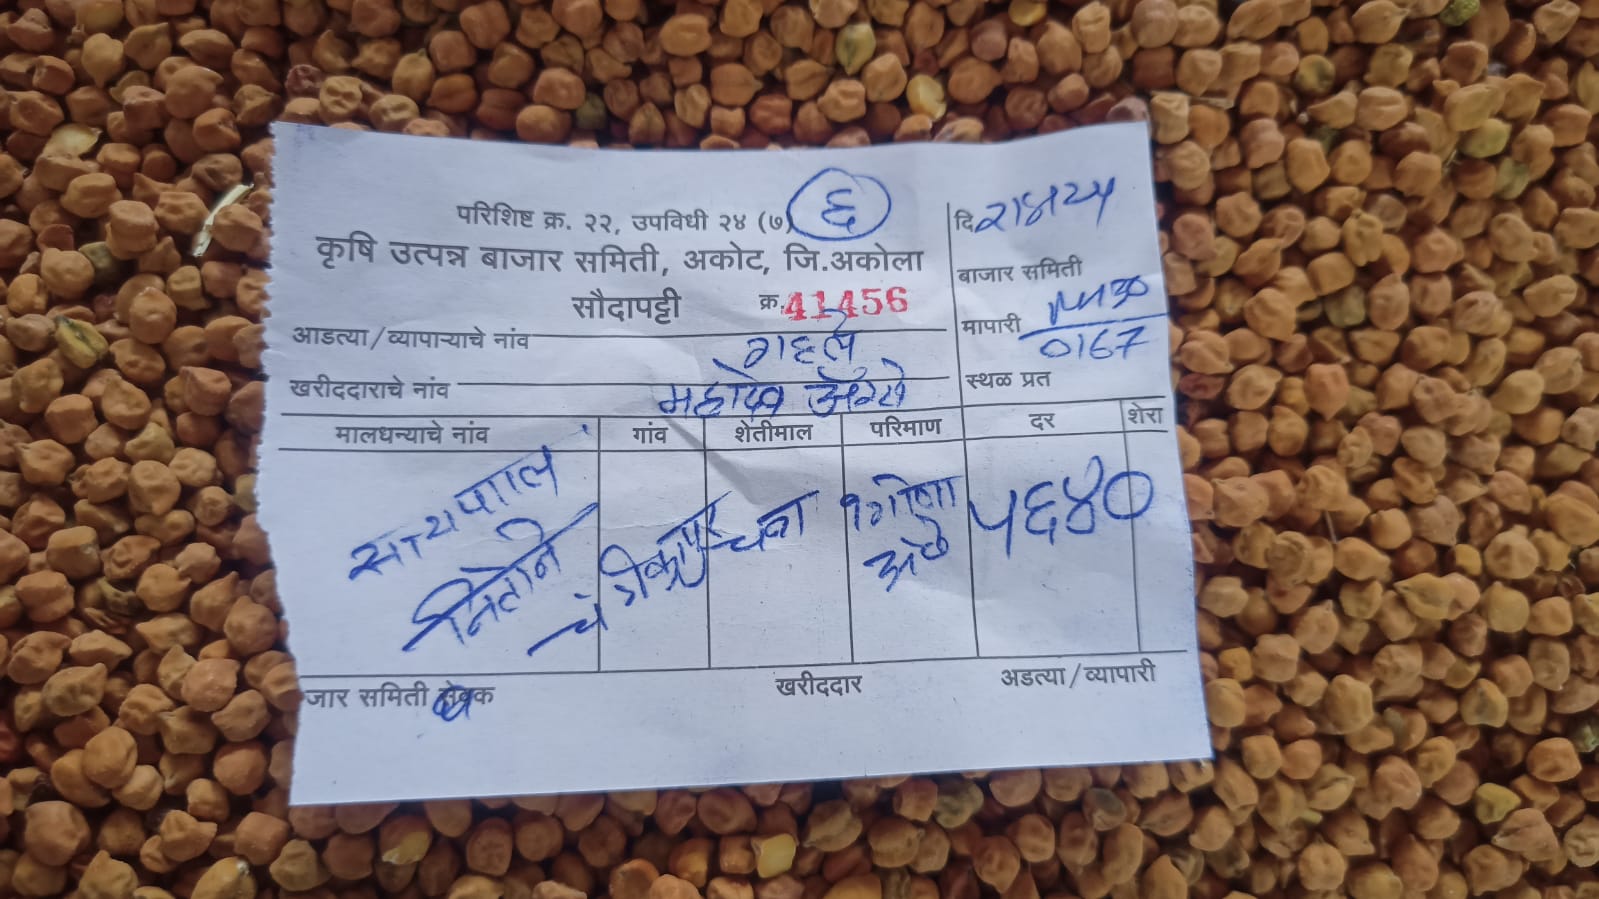 परिशिष्ट क्र. २२, उपविधी २४ (७) ६
कृषि उत्पन्न बाजार समिती, अकोट, जि.अकोला
सौदापट्टी क्र. 41456
दि
बाजार समिती
मापारी 0167
स्थळ प्रत
आडत्या/व्यापाऱ्याचे नांव
खरीददाराचे नांव महादेव
मालधन्याचे नांव गांव शेतीमाल परिमाण दर शेरा
सत्यपाल चना ५६४०
जार समिती सेवक खरीददार अडत्या/व्यापारी